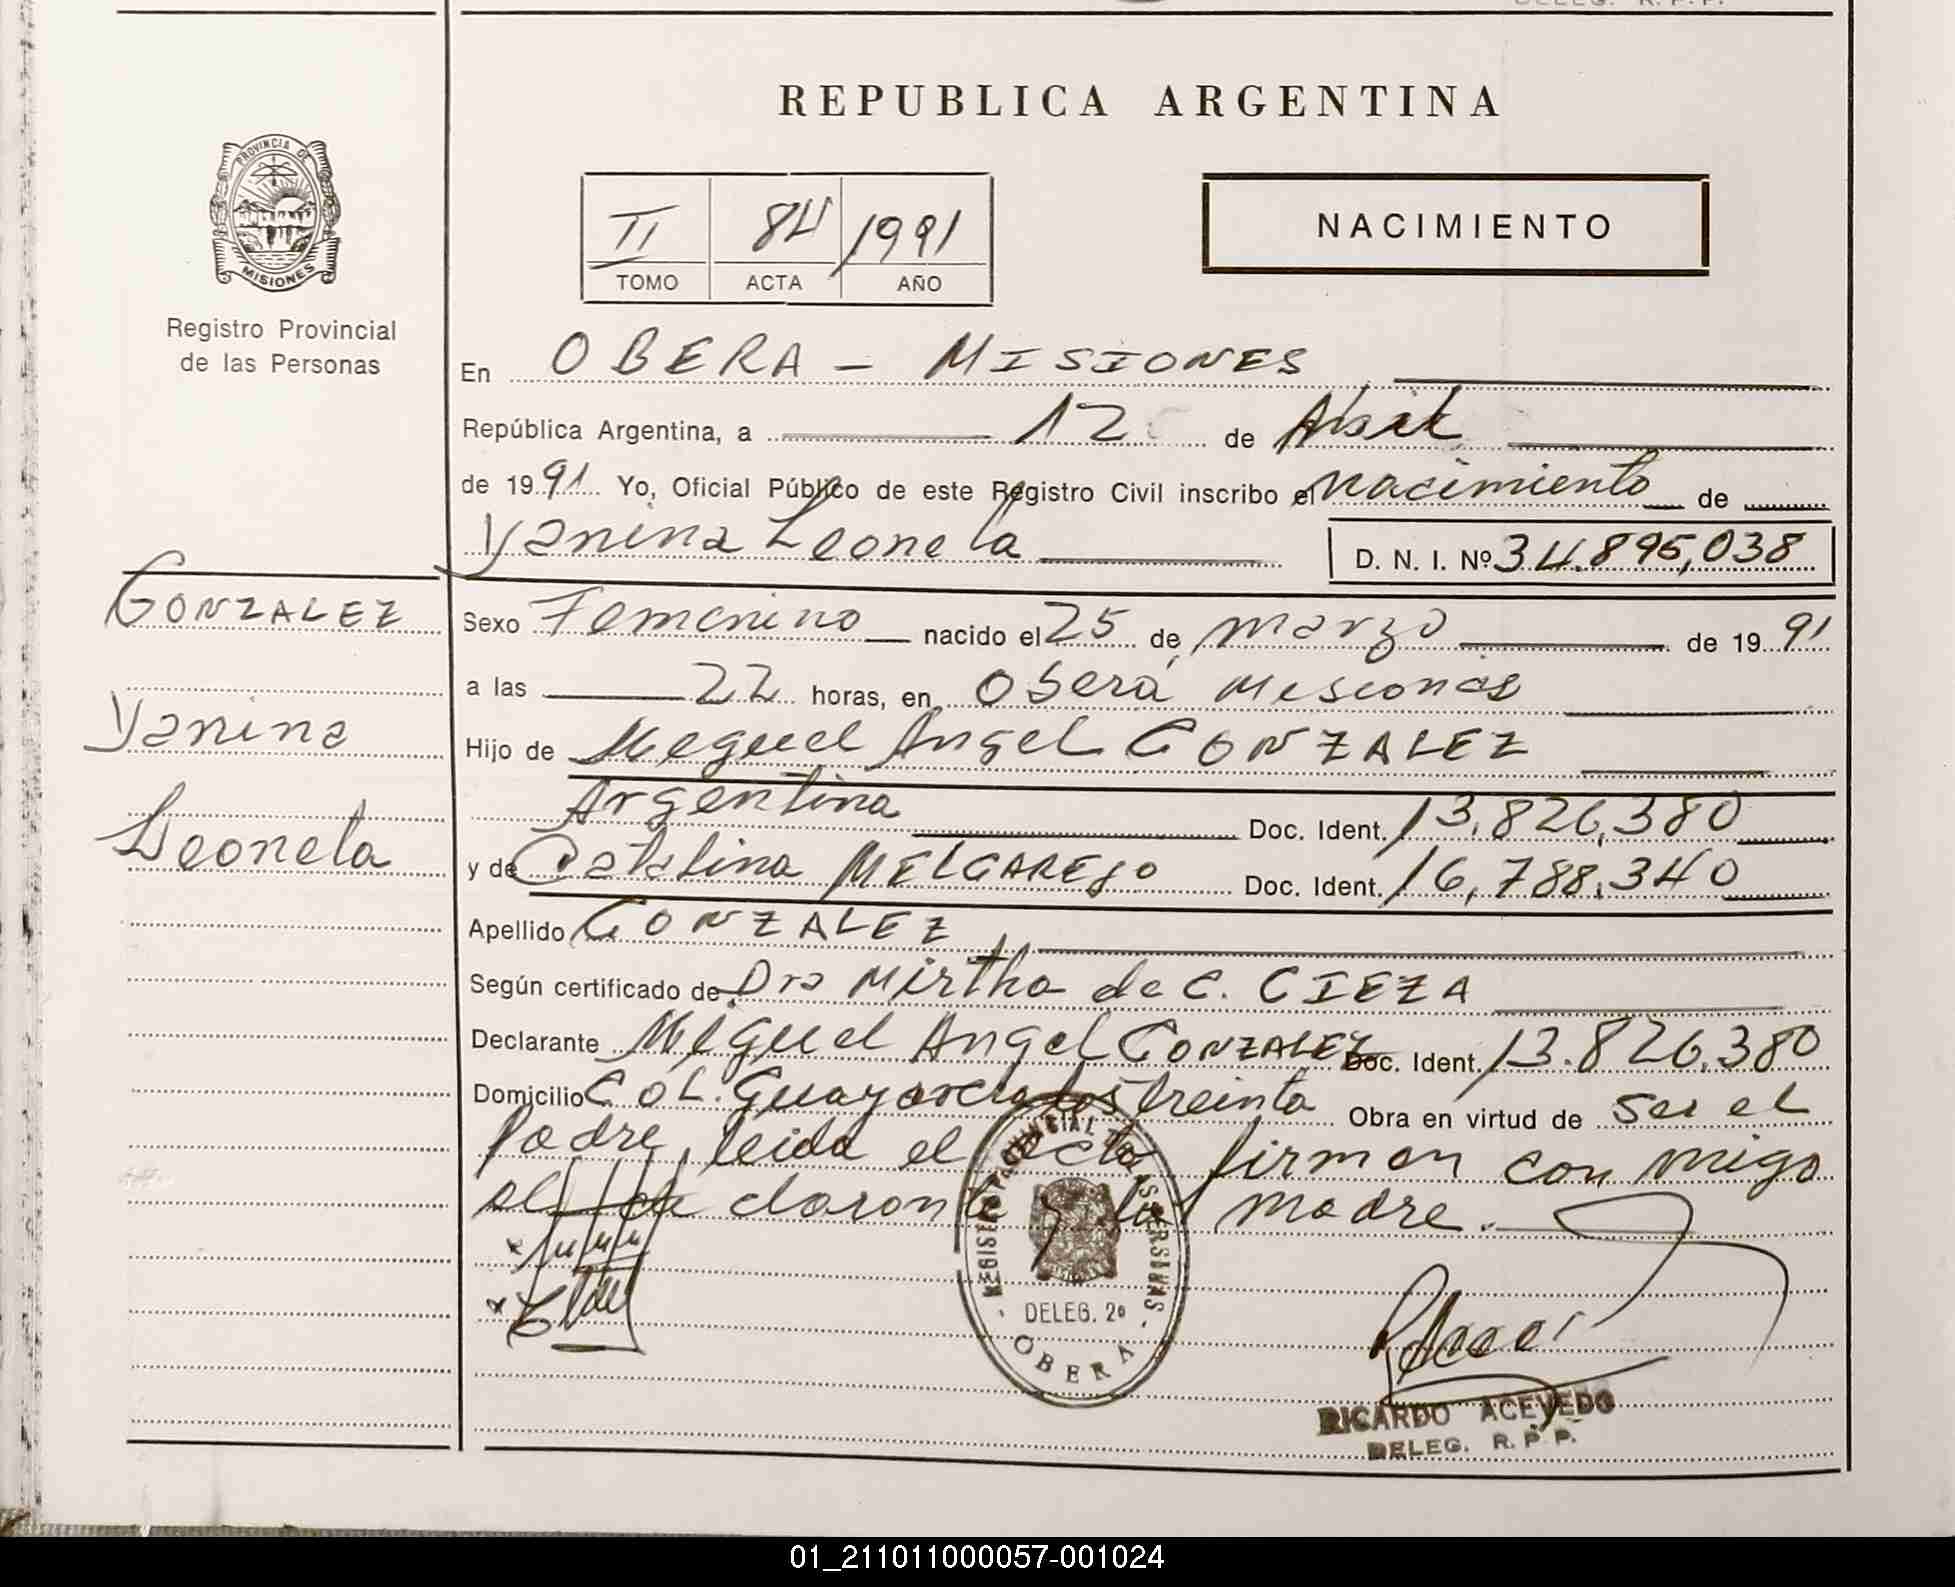 REPUBLICA ARGENTINA
PROVINCIA DE
MISIONES
Registro Provincial
de las Personas
II 84 1991
TOMO ACTA AÑO
NACIMIENTO
En OBERA - MISIONES
República Argentina, a 12 de Abril
de 1991 Yo, Oficial Público de este Registro Civil inscribo el nacimiento de
Yanina Leonela D. N. I. Nº 34.895,038
GONZALEZ
Yanina
Leonela
Sexo Femenino nacido el 25 de marzo de 1991
a las 22 horas, en Oberá Misiones
Hijo de Miguel Angel GONZALEZ
Argentina Doc. Ident. 13,826,380
y de Catalina MELGAREJO Doc. Ident. 16,788,340
Apellido GONZALEZ
Según certificado de Dra Mirtha de C. CIEZA
Declarante Miguel Angel GONZALEZ Doc. Ident. 13.826,380
Domicilio COL. Guayar treinta Obra en virtud de ser el
Padre, leida el acta firman con migo
el de clarante y la madre.
REGISTRO PROVINCIAL DE LAS PERSONAS
DELEG. 2º
OBERA
RICARDO ACEVEDO
DELEG. R. P. P.
01_211011000057-001024